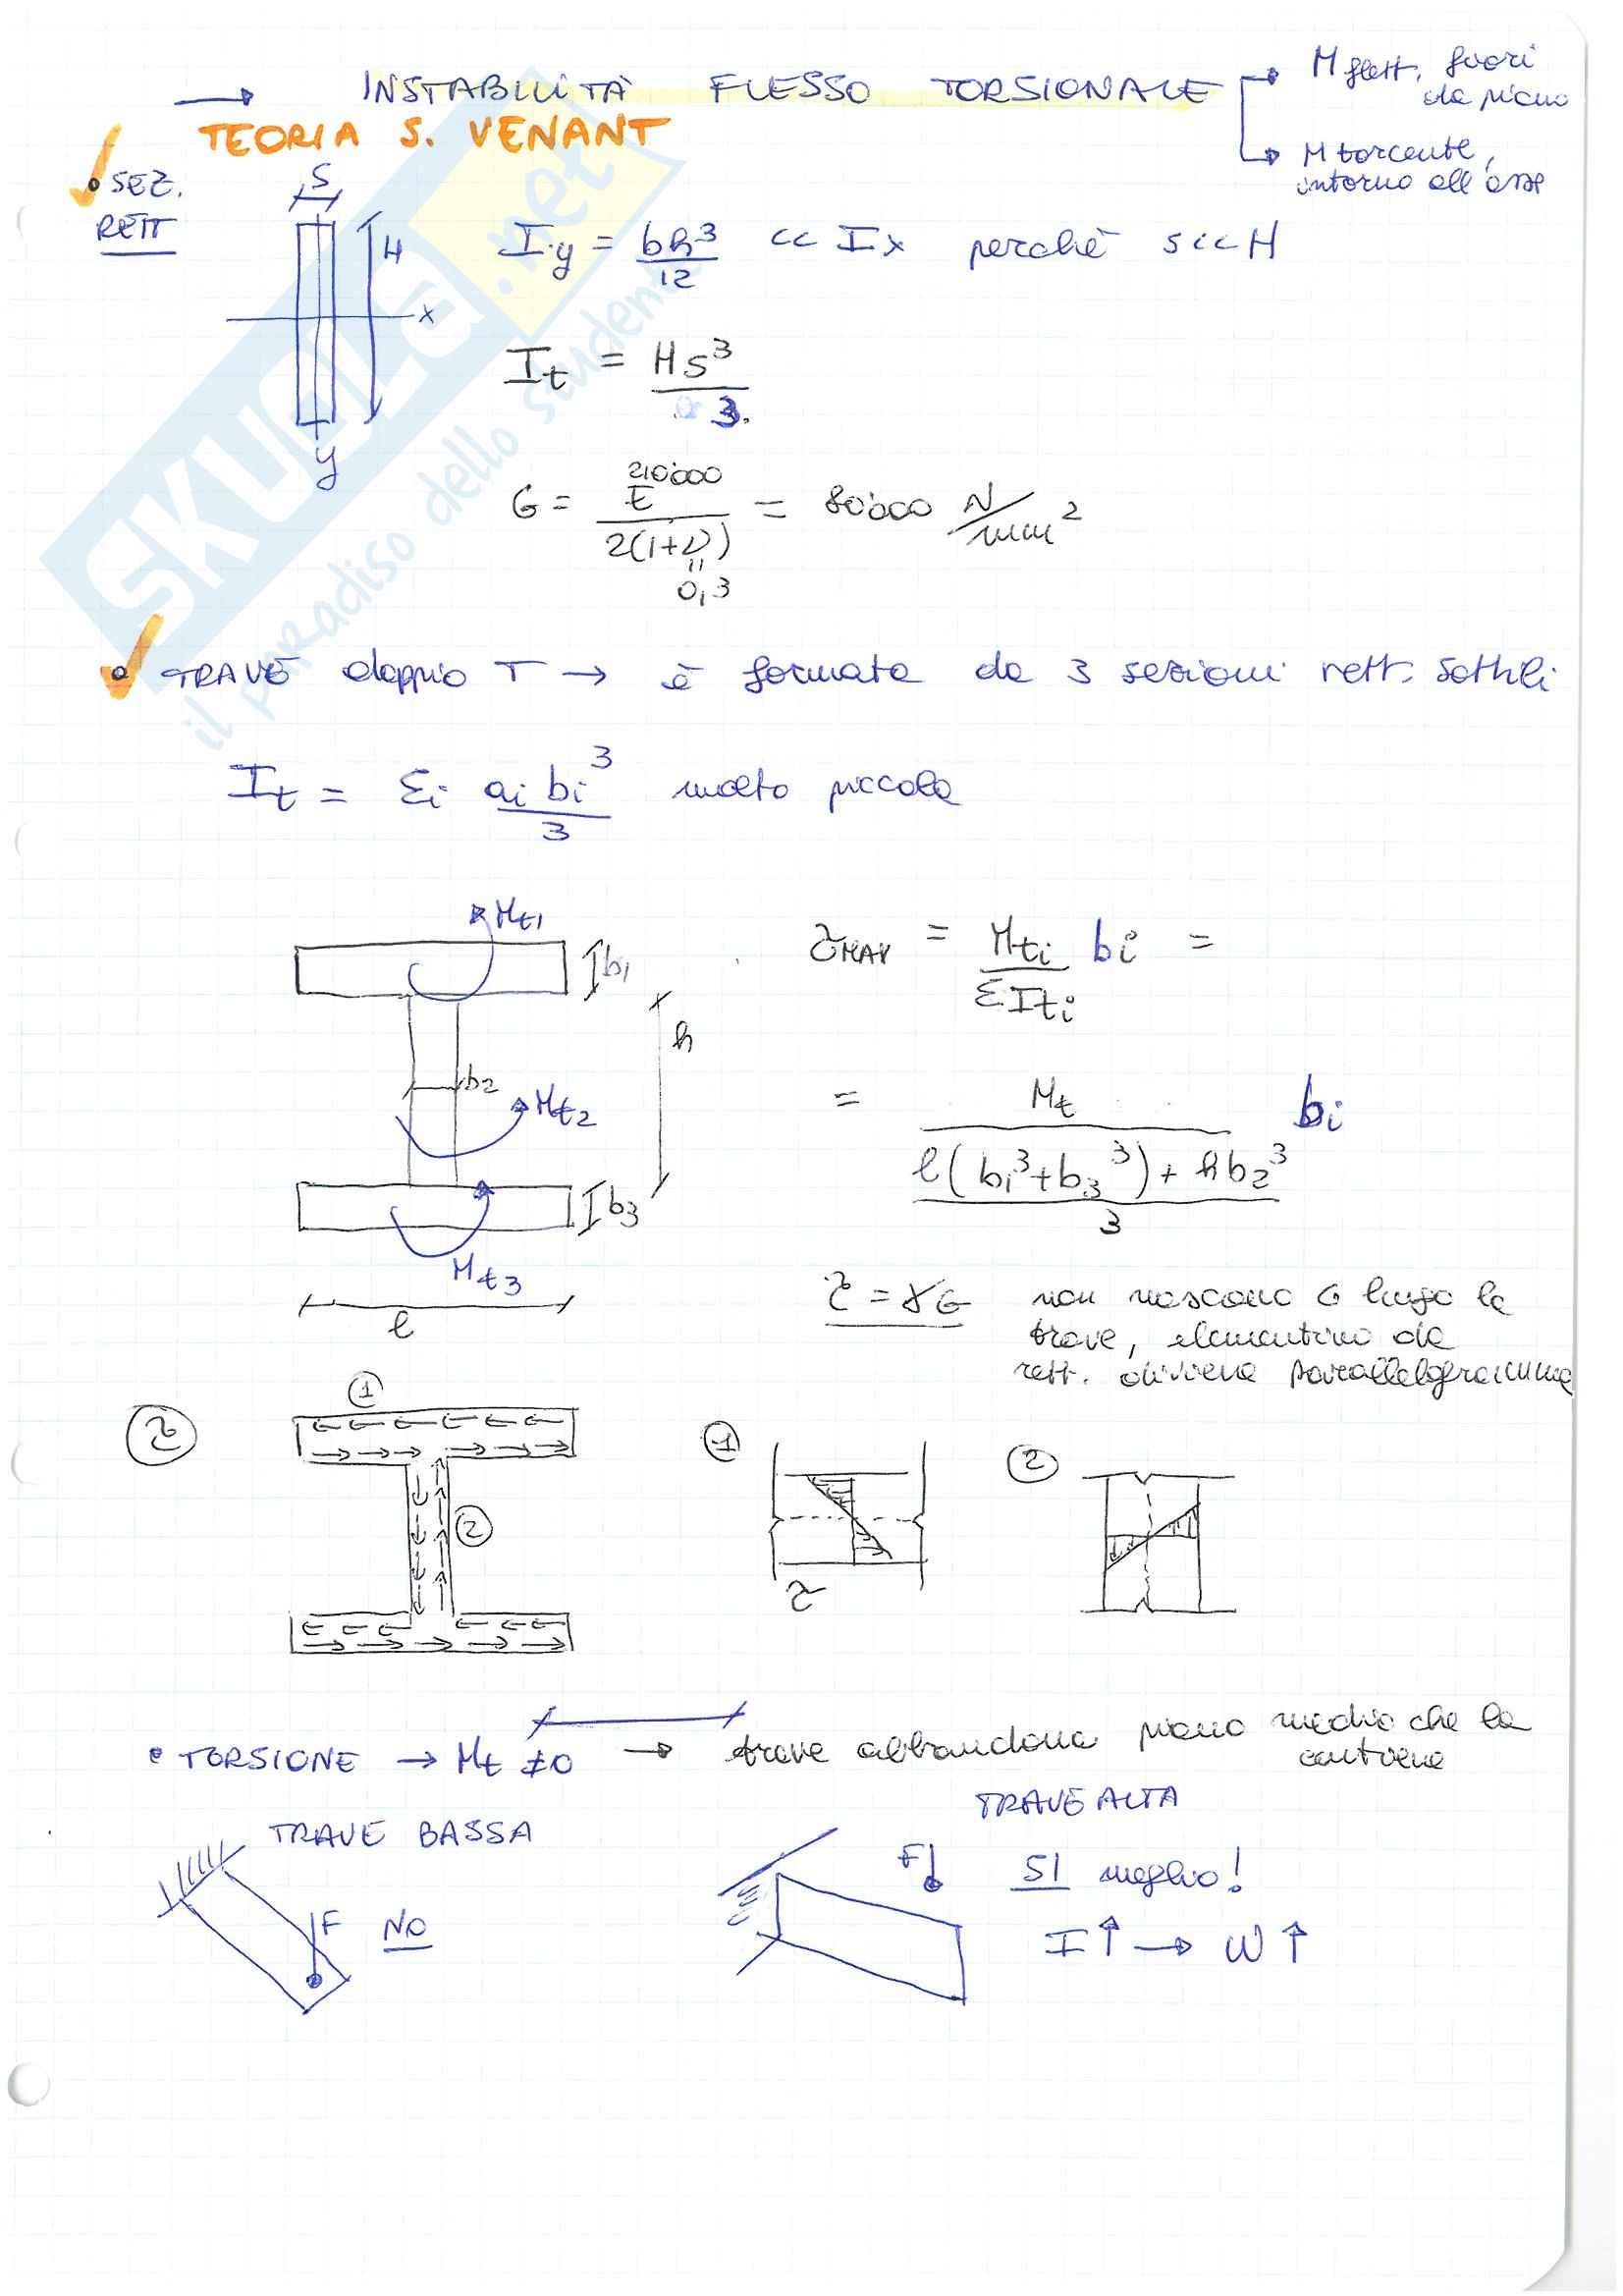 → INSTABILITÀ FLESSO TORSIONALE
→ M flett. fuori
da piano
→ M torcente,
intorno all'asse
TEORIA S. VENANT
• SEZ.
RETT
S
H
x
y
Iy = bh³/12 << Ix perchè s<<H
It = Hs³/3.
G = E/2(1+ν) = 80'000 N/mm²
210'000
0,3
• TRAVE doppio T → è formata da 3 sezioni rett. sottili
It = Σi ai bi³/3 molto piccola
Mt1
b1
h
b2
Mt2
b3
Mt3
l
τMAX = Mti/ΣIti bi =
= Mt/(l(b1³+b3³)+hb2³/3) bi
τ = γG non nascono σ lungo la
trave, elementino da
rett. diviene parallelogramma
τ
1
2
1
τ
2
• TORSIONE → Mt ≠0 → trave abbandona piano medio che la
contiene
TRAVE BASSA
F
NO
TRAVE ALTA
F
SI meglio!
I↑ → W↑
SKUOLA.net
il paradiso dello studente